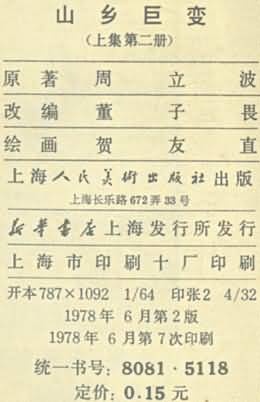 山乡巨变
(上集第二册)
原著 周立波
改编 董子畏
绘画 贺友直
上海人民美術出版社出版
上海长乐路672弄33号
新华书店上海发行所发行
上海市印刷十厂印刷
开本787×1092 1/64 印张2 4/32
1978年 6月第2版
1978年 6月第7次印刷
统一书号：8081·5118
定价：0.15元